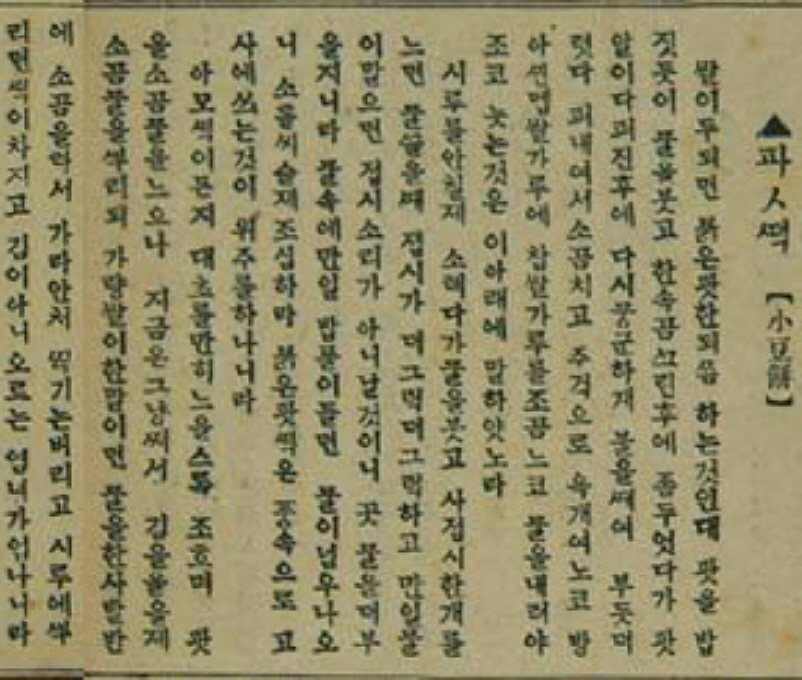 ▲파ㅅ떡 【小豆餠】
쌀이두되면 붉은팟한되씀 하는것인대 팟을 밥
짓듯이 물을붓고 한속굼ᄭᅳ린후에 좀두엇다가 팟
알이다퍼진후에 다시뭉군하게 불을쌔여 부둣더
럿다 퍼내여서소곰치고 주걱으로 욱개여노코 방
아씬멥쌀가루에 찹쌀가루를조곰느코 물을내려야
조코 늣는것은 이아래에 말하얏노라
시루를안칠제 소례다가물을붓고 사접시한개를
느면 물ᄭᅳᆯ을ᄶᅢ 접시가 더그럭더그럭하고 만일물
이말으면 접시소리가 아니날것이니 곳 물을더부
을지니라 물속에만일 밥풀이들면 물이넘우나오
니 소를씨슬제조심하라 붉은팟떡은 풍속으로 고
사에쓰는것이 위주를하나니라
아모떡이든지 대초를만히느을스록 조흐며 팟
을소곰물을느으나 지금은그냥ᄶᅧ서 김을올을제
소곰물을ᄲᅮ리되 가량쌀이한말이면 물을한사발반
에 소곰을타서 가라안처 찍기는버리고 시루에ᄲᅮ
리면떡이차지고 김이아니오르는 염녀가업나니라